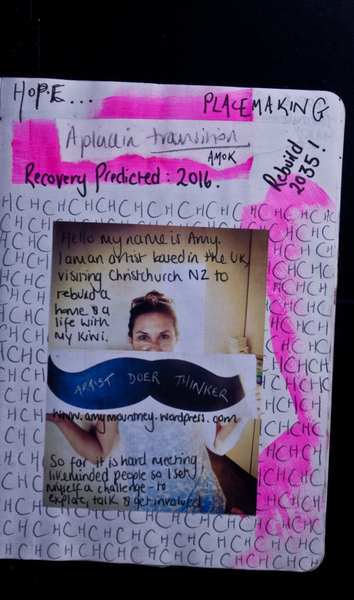 HOPE...
PLACEMAKING
A place in transition
AMOK
Recovery Predicted: 2016.
Rebuild
2035!
Hello my name is Amy.
I am an artist based in the UK,
visiting Christchurch NZ to
rebuild a
home & a
life with
my Kiwi.
ARTIST DOER THINKER
www.amymountney.wordpress.com
So far it is hard meeting
likeminded people so I set
myself a challenge - to
explore, talk & get involved